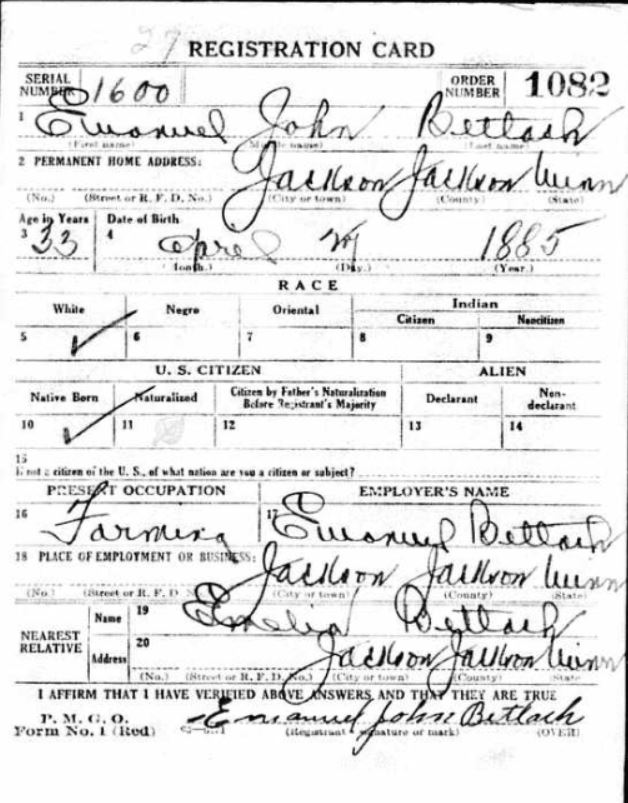 27
REGISTRATION CARD
SERIAL NUMBER 1600 ORDER NUMBER 1082
1 Emanuel John Betlach
(First name) (Middle name) (Last name)
2 PERMANENT HOME ADDRESS:
Jackson Jackson Minn
(No.) (Street or R. F. D. No.) (City or town) (County) (State)
Age in Years Date of Birth
3 33 4 April 1885
(Month.) (Day.) (Year.)
RACE
White Negro Oriental Indian
Citizen Noncitizen
5 ✓ 6 7 8 9
U. S. CITIZEN ALIEN
Native Born Naturalized Citizen by Father's Naturalization Before Registrant's Majority Declarant Non-declarant
10 ✓ 11 12 13 14
15
If not a citizen of the U. S., of what nation are you a citizen or subject?
PRESENT OCCUPATION EMPLOYER'S NAME
16 Farming 17 Emanuel Betlach
18 PLACE OF EMPLOYMENT OR BUSINESS:
Jackson Jackson Minn
(No.) (Street or R. F. D. No.) (City or town) (County) (State)
NEAREST RELATIVE Name 19 Emelia Betlach
Address 20 Jackson Jackson Minn
(No.) (Street or R. F. D. No.) (City or town) (County) (State)
I AFFIRM THAT I HAVE VERIFIED ABOVE ANSWERS AND THAT THEY ARE TRUE
P. M. G. O.
Form No. 1 (Red) Emanuel John Betlach
(Registrant's signature or mark) (OVER)